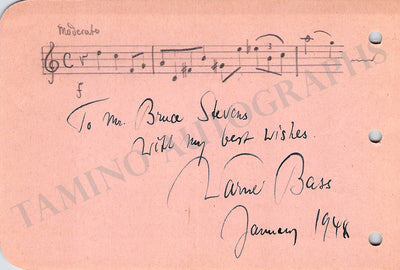 Moderato
f
To Mr. Bruce Stevens
With my best wishes.
Warner Bass
January 1948
TAMINO AUTOGRAPHS